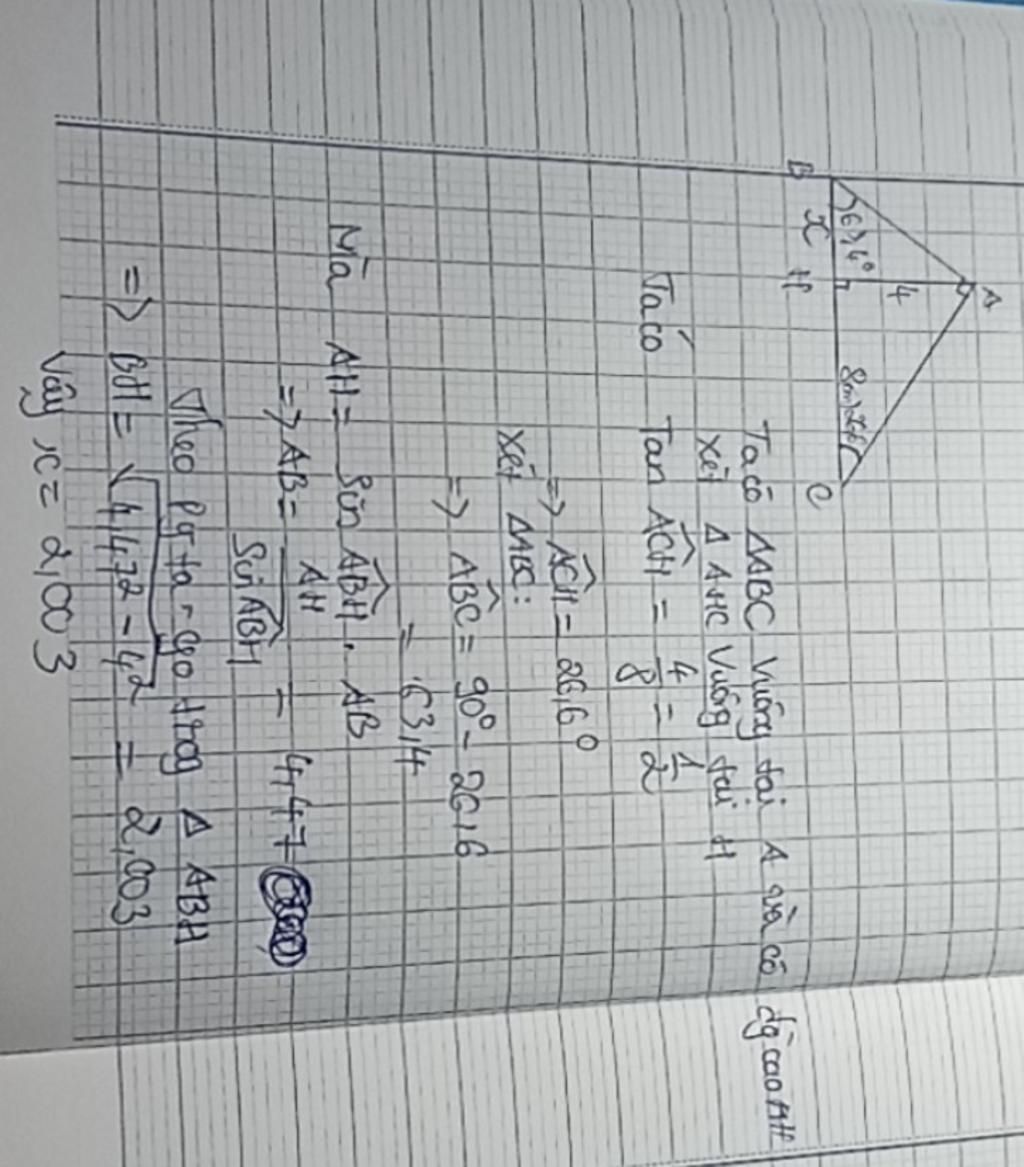 A
63,4°
4
B
x
H
8cm
C
Ta có ΔABC Vuông tại A và có đg cao AH
Xét Δ AHC Vuông tại H
Ta có Tan \widehat{ACH} = 4/8 = 1/2
=> \widehat{ACH} = 26,6°
Xét ΔABC:
=> \widehat{ABC} = 90° - 26,6
= 63,4
Mà AH = Sin \widehat{ABH} . AB
=> AB = AH / Sin \widehat{ABH} = 4,47
Theo Py-ta-go trog Δ ABH
=> BH = √4,47² - 4² = 2,003
Vậy x = 2,003